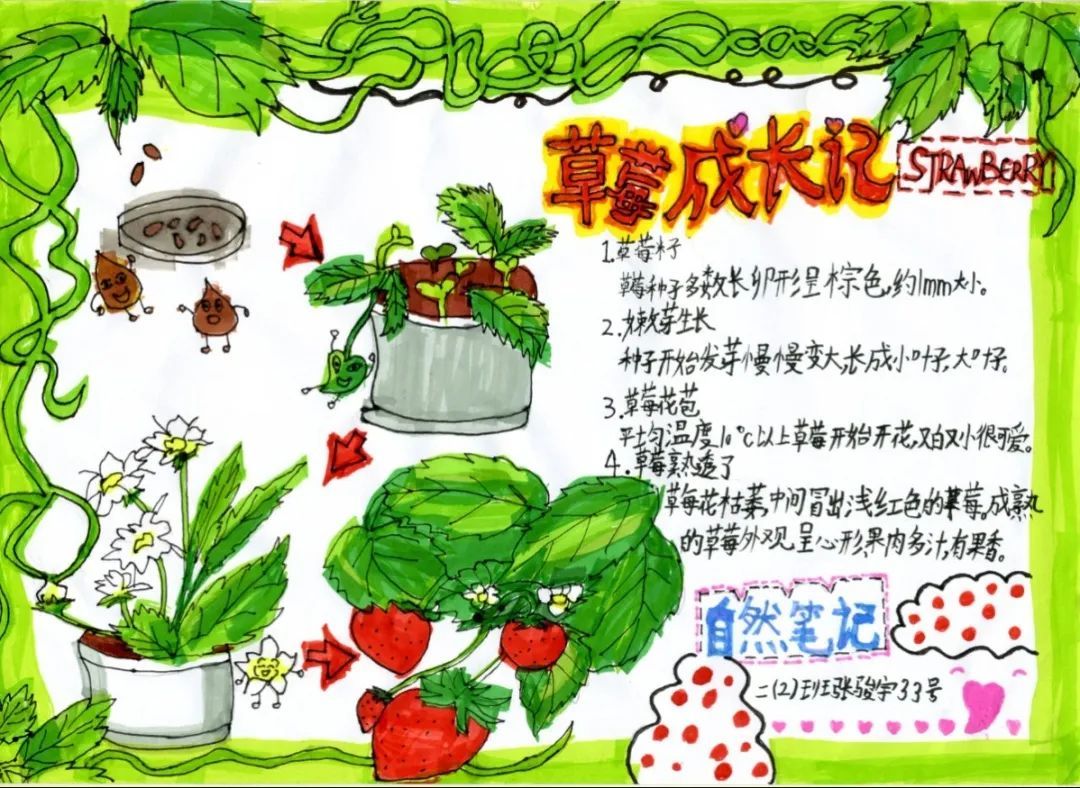 草莓成长记
STRAWBERRY
1.草莓籽
草莓种子多数长卵形呈棕色,约1mm大小。
2.嫩芽生长
种子开始发芽慢慢变大,长成小叶子,大叶子。
3.草莓花苞
平均温度10°C以上草莓开始开花,又白又小很可爱。
4.草莓熟透了
草莓花枯萎,中间冒出浅红色的草莓。成熟
的草莓外观呈心形果肉多汁,有果香。
自然笔记
二(2)班张骏宇33号